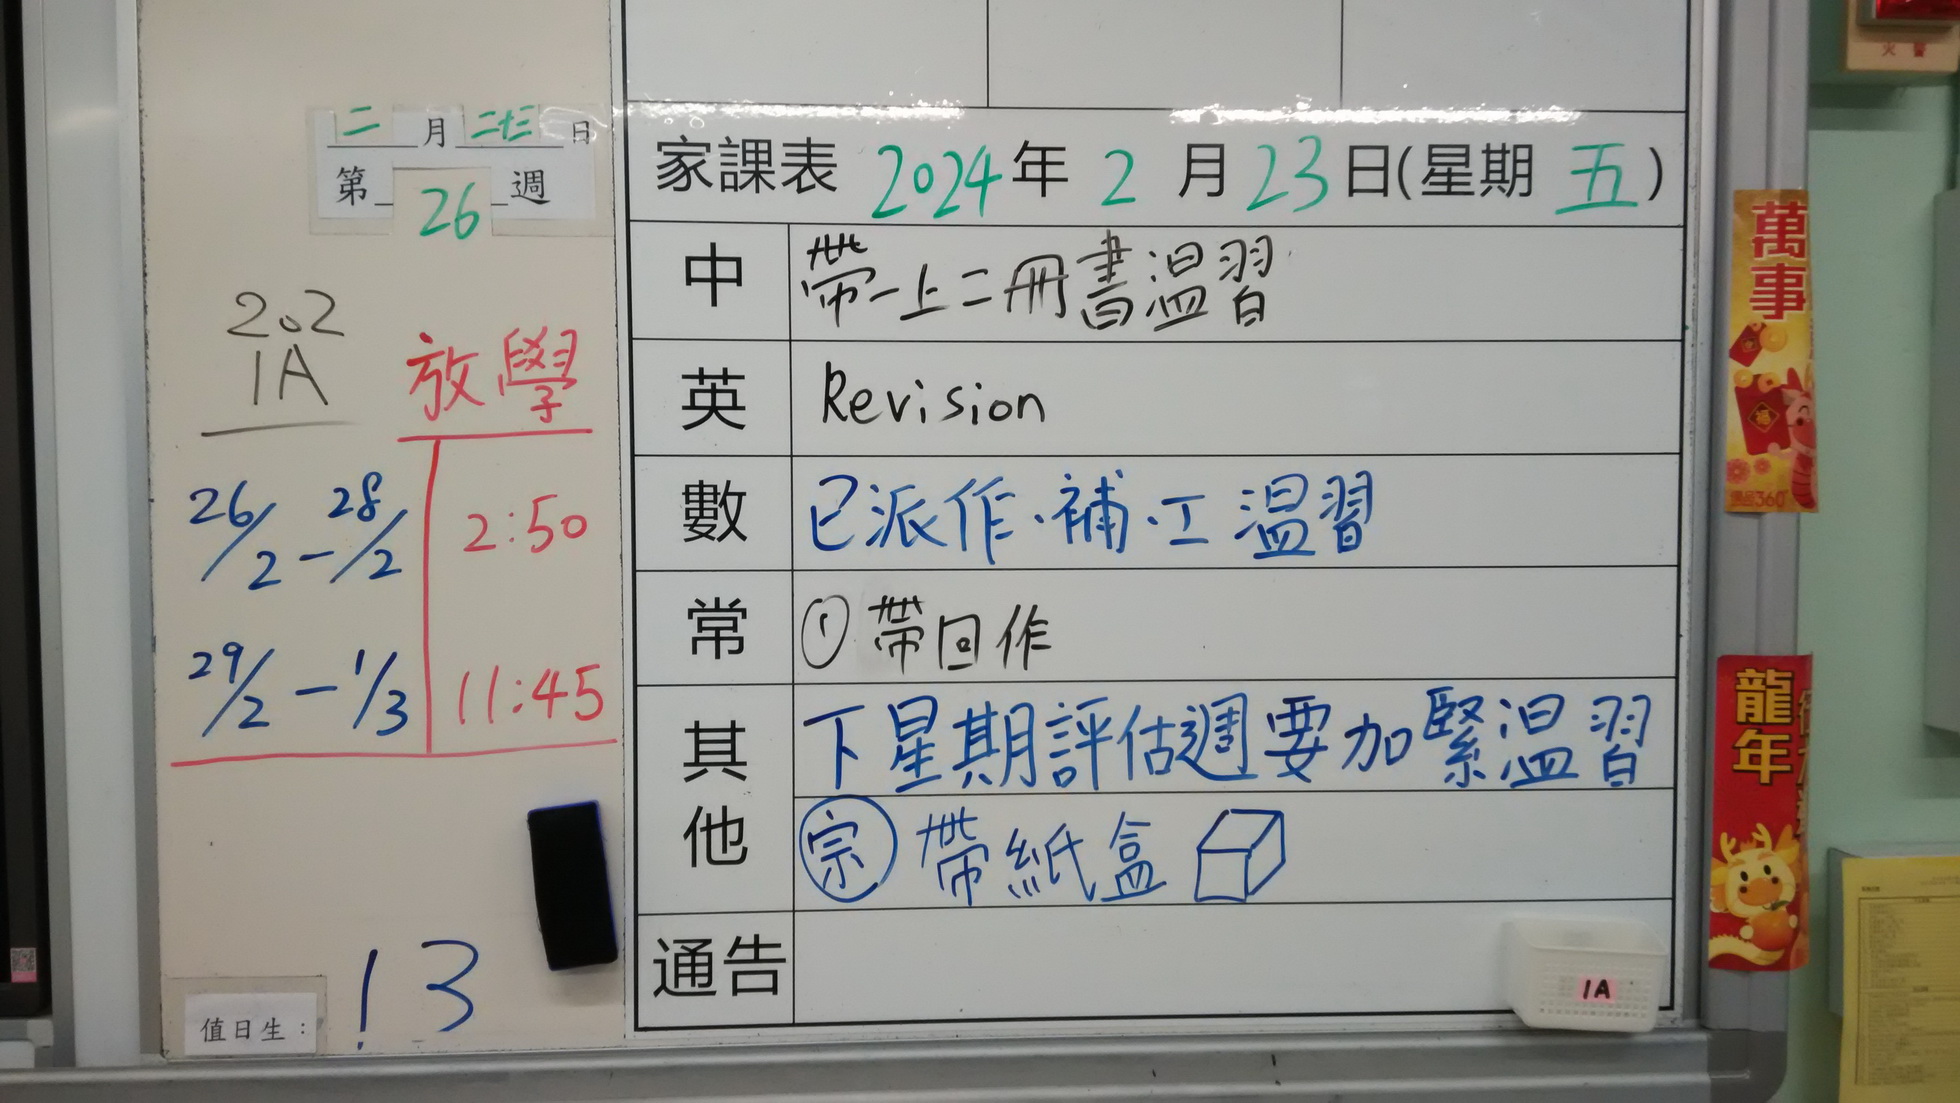 二月二十三日
第26週
202
1A
放學
26/2-28/2 2:50
29/2-1/3 11:45
值日生： 13
家課表 2024年2月23日(星期五)
中 帶一上二冊書溫習
英 Revision
數 已派作.補.工 溫習
常 ①帶回作
其他 下星期評估週要加緊溫習
宗 帶紙盒
通告
1A
火警
萬事
龍年